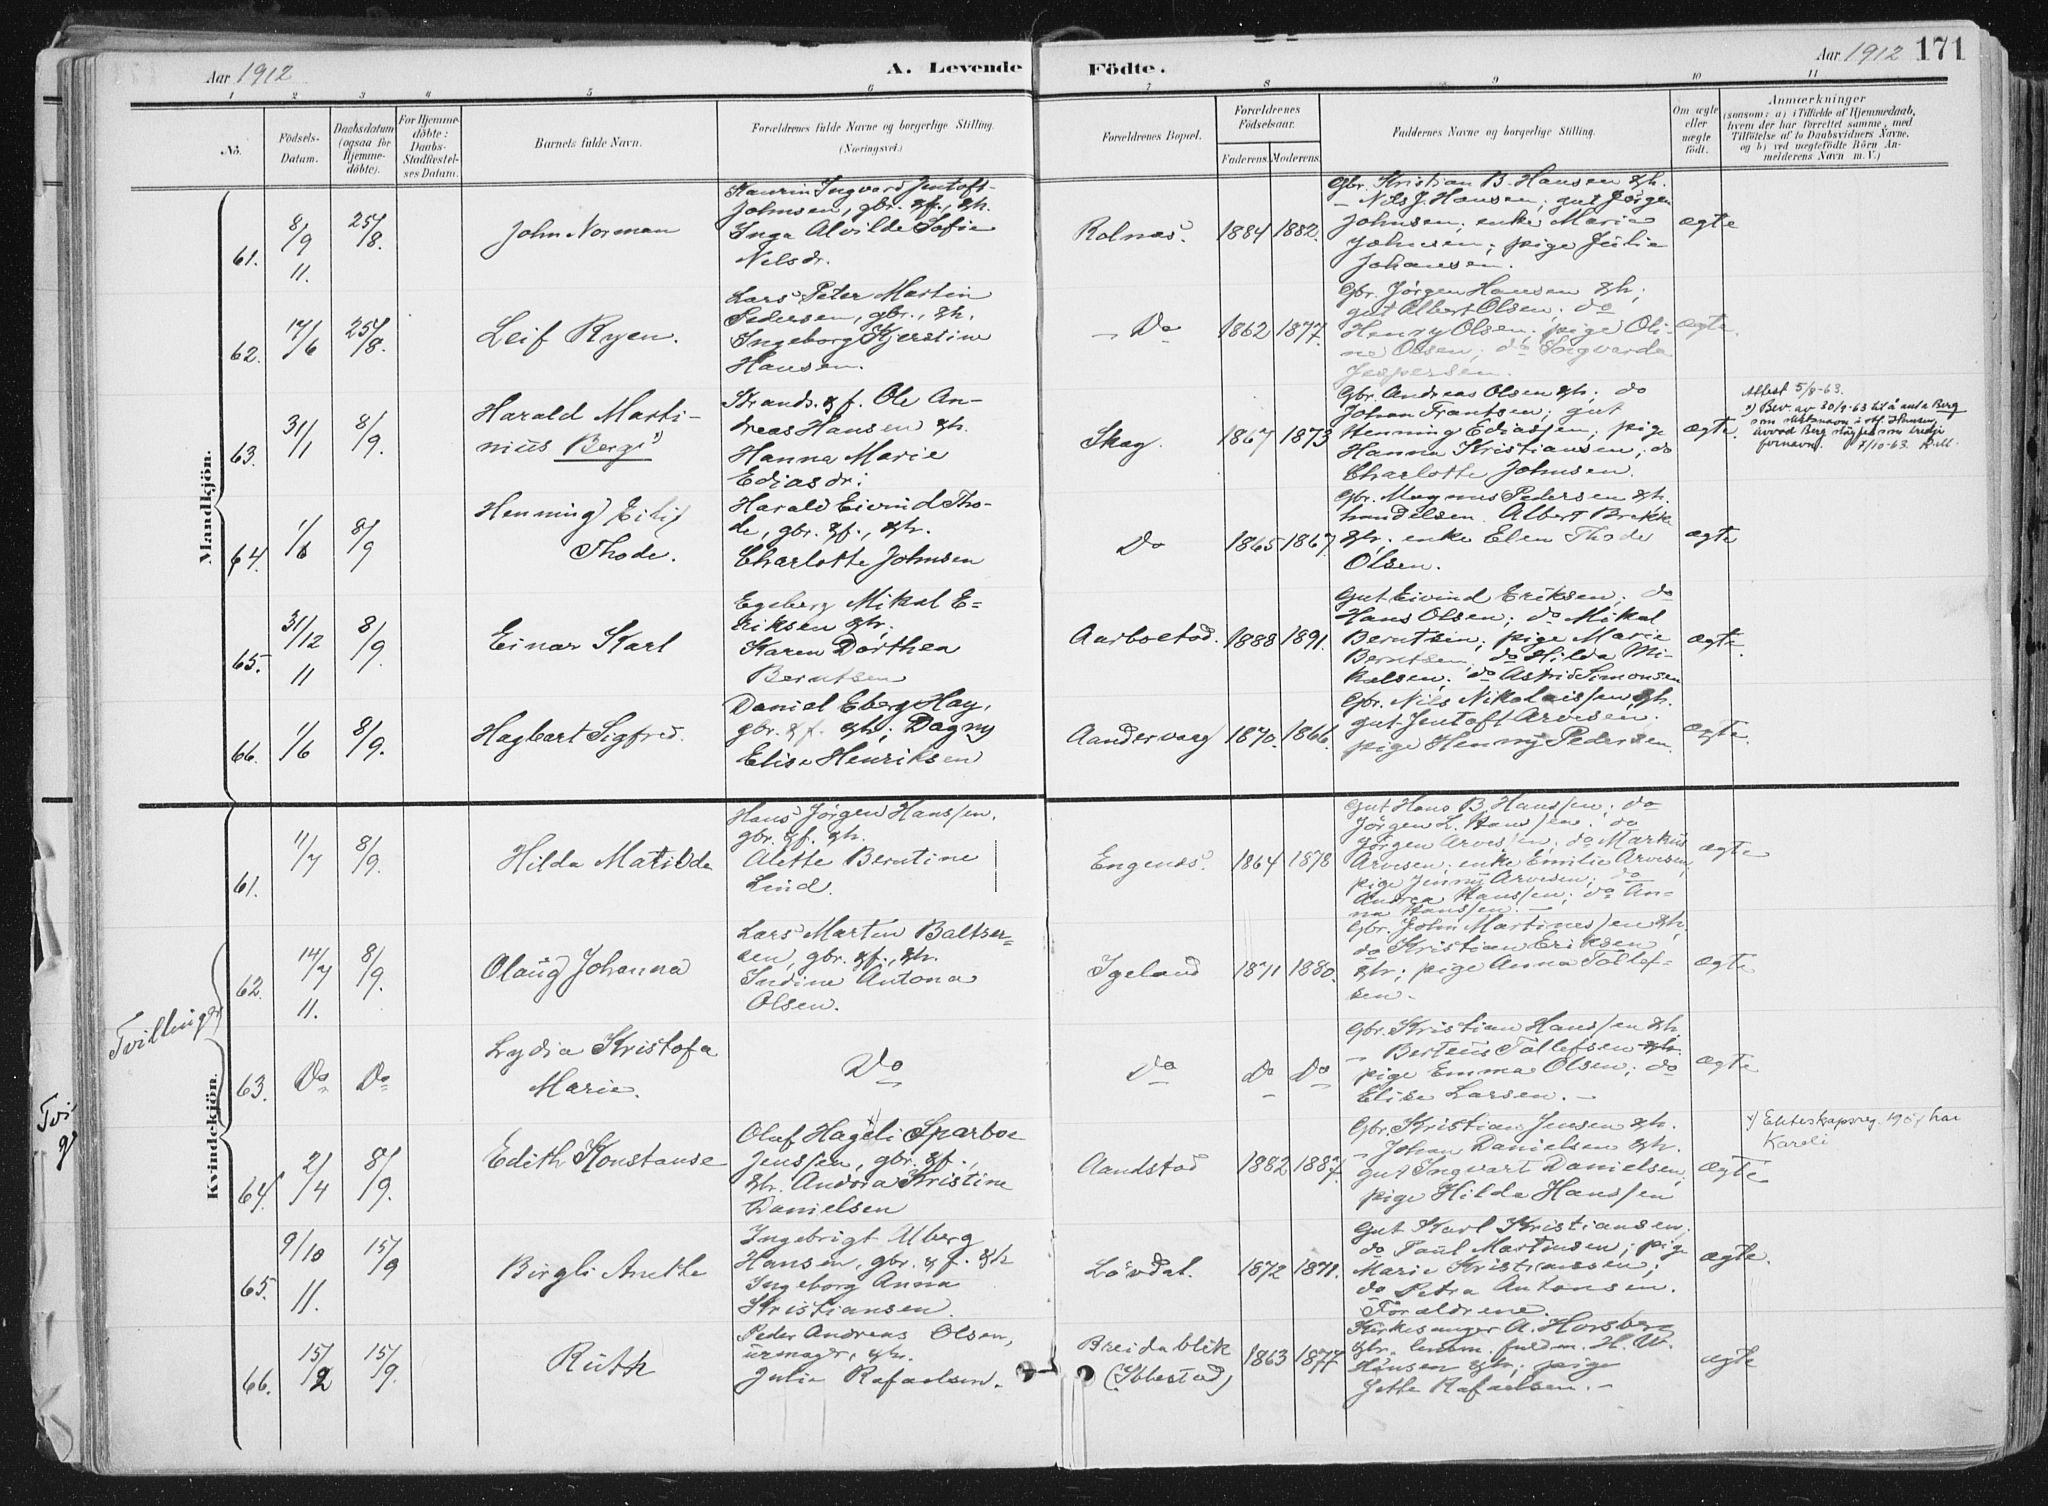 Aar 1912
A. Levende Födte.
Aar 1912 171
1 2 3 4 5 6 7 8 9 10 11
No.
Födsels-
Datum.
Daabsdatum
(ogsaa for
Hjemme-
döbte).
For Hjemme-
döbte:
Daabs-
Stadfæstel-
ses Datum.
Barnets fulde Navn.
Forældrenes fulde Navne og borgerlige Stilling.
(Næringsvei.)
Forældrenes Bopæl.
Forældrenes
Födselsaar.
Faderens. Moderens.
Faddernes Navne og borgerlige Stilling.
Om ægte
eller
uægte
födt.
Anmærkninger
(saasom: a) i Tilfælde af Hjemmedaab,
hvem der har forrettet samme, med
Tilföielse af to Daabsvidners Navne,
og b) ved uægtefödte Börn An-
melderens Navn m. V.)
Mandkjön.
61.
8/9
11.
25/8.
John Norman
Ingvard Jentoft
Johnsen, gbr. & f., & h.
Inga Alvilde Sofie
Nilsdr.
Rolnæs.
1884 1882.
Gbr. Kristian B. Hansen & h.
— Nils J. Hansen; gut Jörgen
Johnsen; enke Marie
Johnsen; pige Julie
Johansen.
ægte
62.
17/6
25/8.
Leif Ryen.
Lars Peter Martin
Pedersen, gbr., & h.
Ingeborg Kjerstine
Hansen.
— Do
1862 1877.
Gbr. Jörgen Hansen & h;
gut Albert Olsen; do
Henry Olsen; pige Oli-
ne Olsen; do Ingvarda
Jespersen.
ægte.
63.
31/1
8/9.
Harald Marti-
nius Berg x)
Strands. & f. Ole An-
dreas Hansen & h.
Hanna Marie
Ediasdr;
Skog.
1867 1873
Gbr. Andreas Olsen & h; do
Johan Frantsen; gut
Henning Ediassen; pige
Hanna Kristiansen; do
Charlotte Johnsen.
ægte.
Attest 5/8-63.
x) Bev. av 30/9-63 til å anta Berg
som slektsnavn i st.f. Hansen,
hvorved Berg sløyfes som tredje
fornavn. 7/10-63
64.
1/6
8/9
Henning Eilif
Thode.
Harald Eivind Tho-
de, gbr. & f., & h.
Charlotte Johnsen
Do
1865 1867
Gbr. Magnus Pedersen & h.
handelsm. Albert Brekke
& h; enke Elen Thode
Olsen.
ægte
65.
31/12
11
8/9.
Einar Karl
Egeberg Mikal E-
riksen & h;
Karen Dorthea
Berntsen
Aarbostad.
1888 1891.
Gut Eivind Eriksen; do
Hans Olsen; do Mikal
Berntsen; pige Marie
Berntsen; do Hilda Mi-
kalsen; do Astrid Simonsen
ægte.
66.
1/6
8/9.
Hagbart Sigfred.
Daniel Eberg Hay,
gbr. & f. & h; Dagny
Elise Henriksen
Aandervaag
1870. 1866.
Gbr. Nils Nikolaissen, & h.
gut Jentoft Arvesen.
pige Henny Pedersen.
ægte.
Kvindekjön.
61.
11/7
8/9.
Hilda Matilda
Hans Jörgen Hanssen,
gbr. & f. & h.
Alette Berntine
Lind.
Engenæs.
1864 1878
Gut Hans B. Hanssen; do
Jörgen L. Hanssen; do
Jörgen Arvessen; do Markus
Arvesen; enke Emilie Arvesen,
pige Jenny Arvesen; do
Andrea Hanssen; do An-
na Hanssen.
ægte
Tvillinger
62.
14/7
11.
8/9.
Olaug Johanna
Lars Martin Baltser-
sen, gbr. & f., & h.
Indine Antona
Olsen.
Igeland
1871 1880.
Gbr. John Martinessen & h,
do Kristian Eriksen
& h; pige Anna Tollef-
sen.
ægte
63.
Do
Do
Lydia Kristofa
Marie.
Do
Do
Do Do
Gbr. Kristian Hanssen & h.
— Berteus Tollefsen & h.
pige Emma Olsen; do
Elise Larsen. —
ægte
64.
2/4
8/9.
Edith Konstanse
Oluf Hageli x) Sparboe
Jenssen, gbr. & f.,
& h. Andora Kristine
Danielsen
Aandstad
1882 1887.
Gbr. Kristian Jensen & h.
— Johan Danielsen & h.
gut Ingvart Danielsen,
pige Hilda Hanssen
ægte.
x) Ekteskapsreg. 1907 har
Kareli
65.
9/10
11.
15/9
Birgli Anette
Ingebrigt Alberg
Hansen, gbr. & f. & h
Ingeborg Anna
Kristiansen.
Lövdal.
1872 1871.
Gut Karl Kristiansen;
do Paul Martinsen; pige
Marie Kristianssen;
do Petra Antonsen.
Forældrene.
ægte.
66.
15/2
15/9.
Ruth
Peder Andreas Olsen,
urmager, & h.
Julie Rafaelsen.
Breidablik
(Ibbestad)
1863 1877.
Kirkesanger A. Horsberg
gbr. lensm. fuldm. H. W.
Hansen & h; pige
Jette Rafaelsen. —
ægte
Tvi